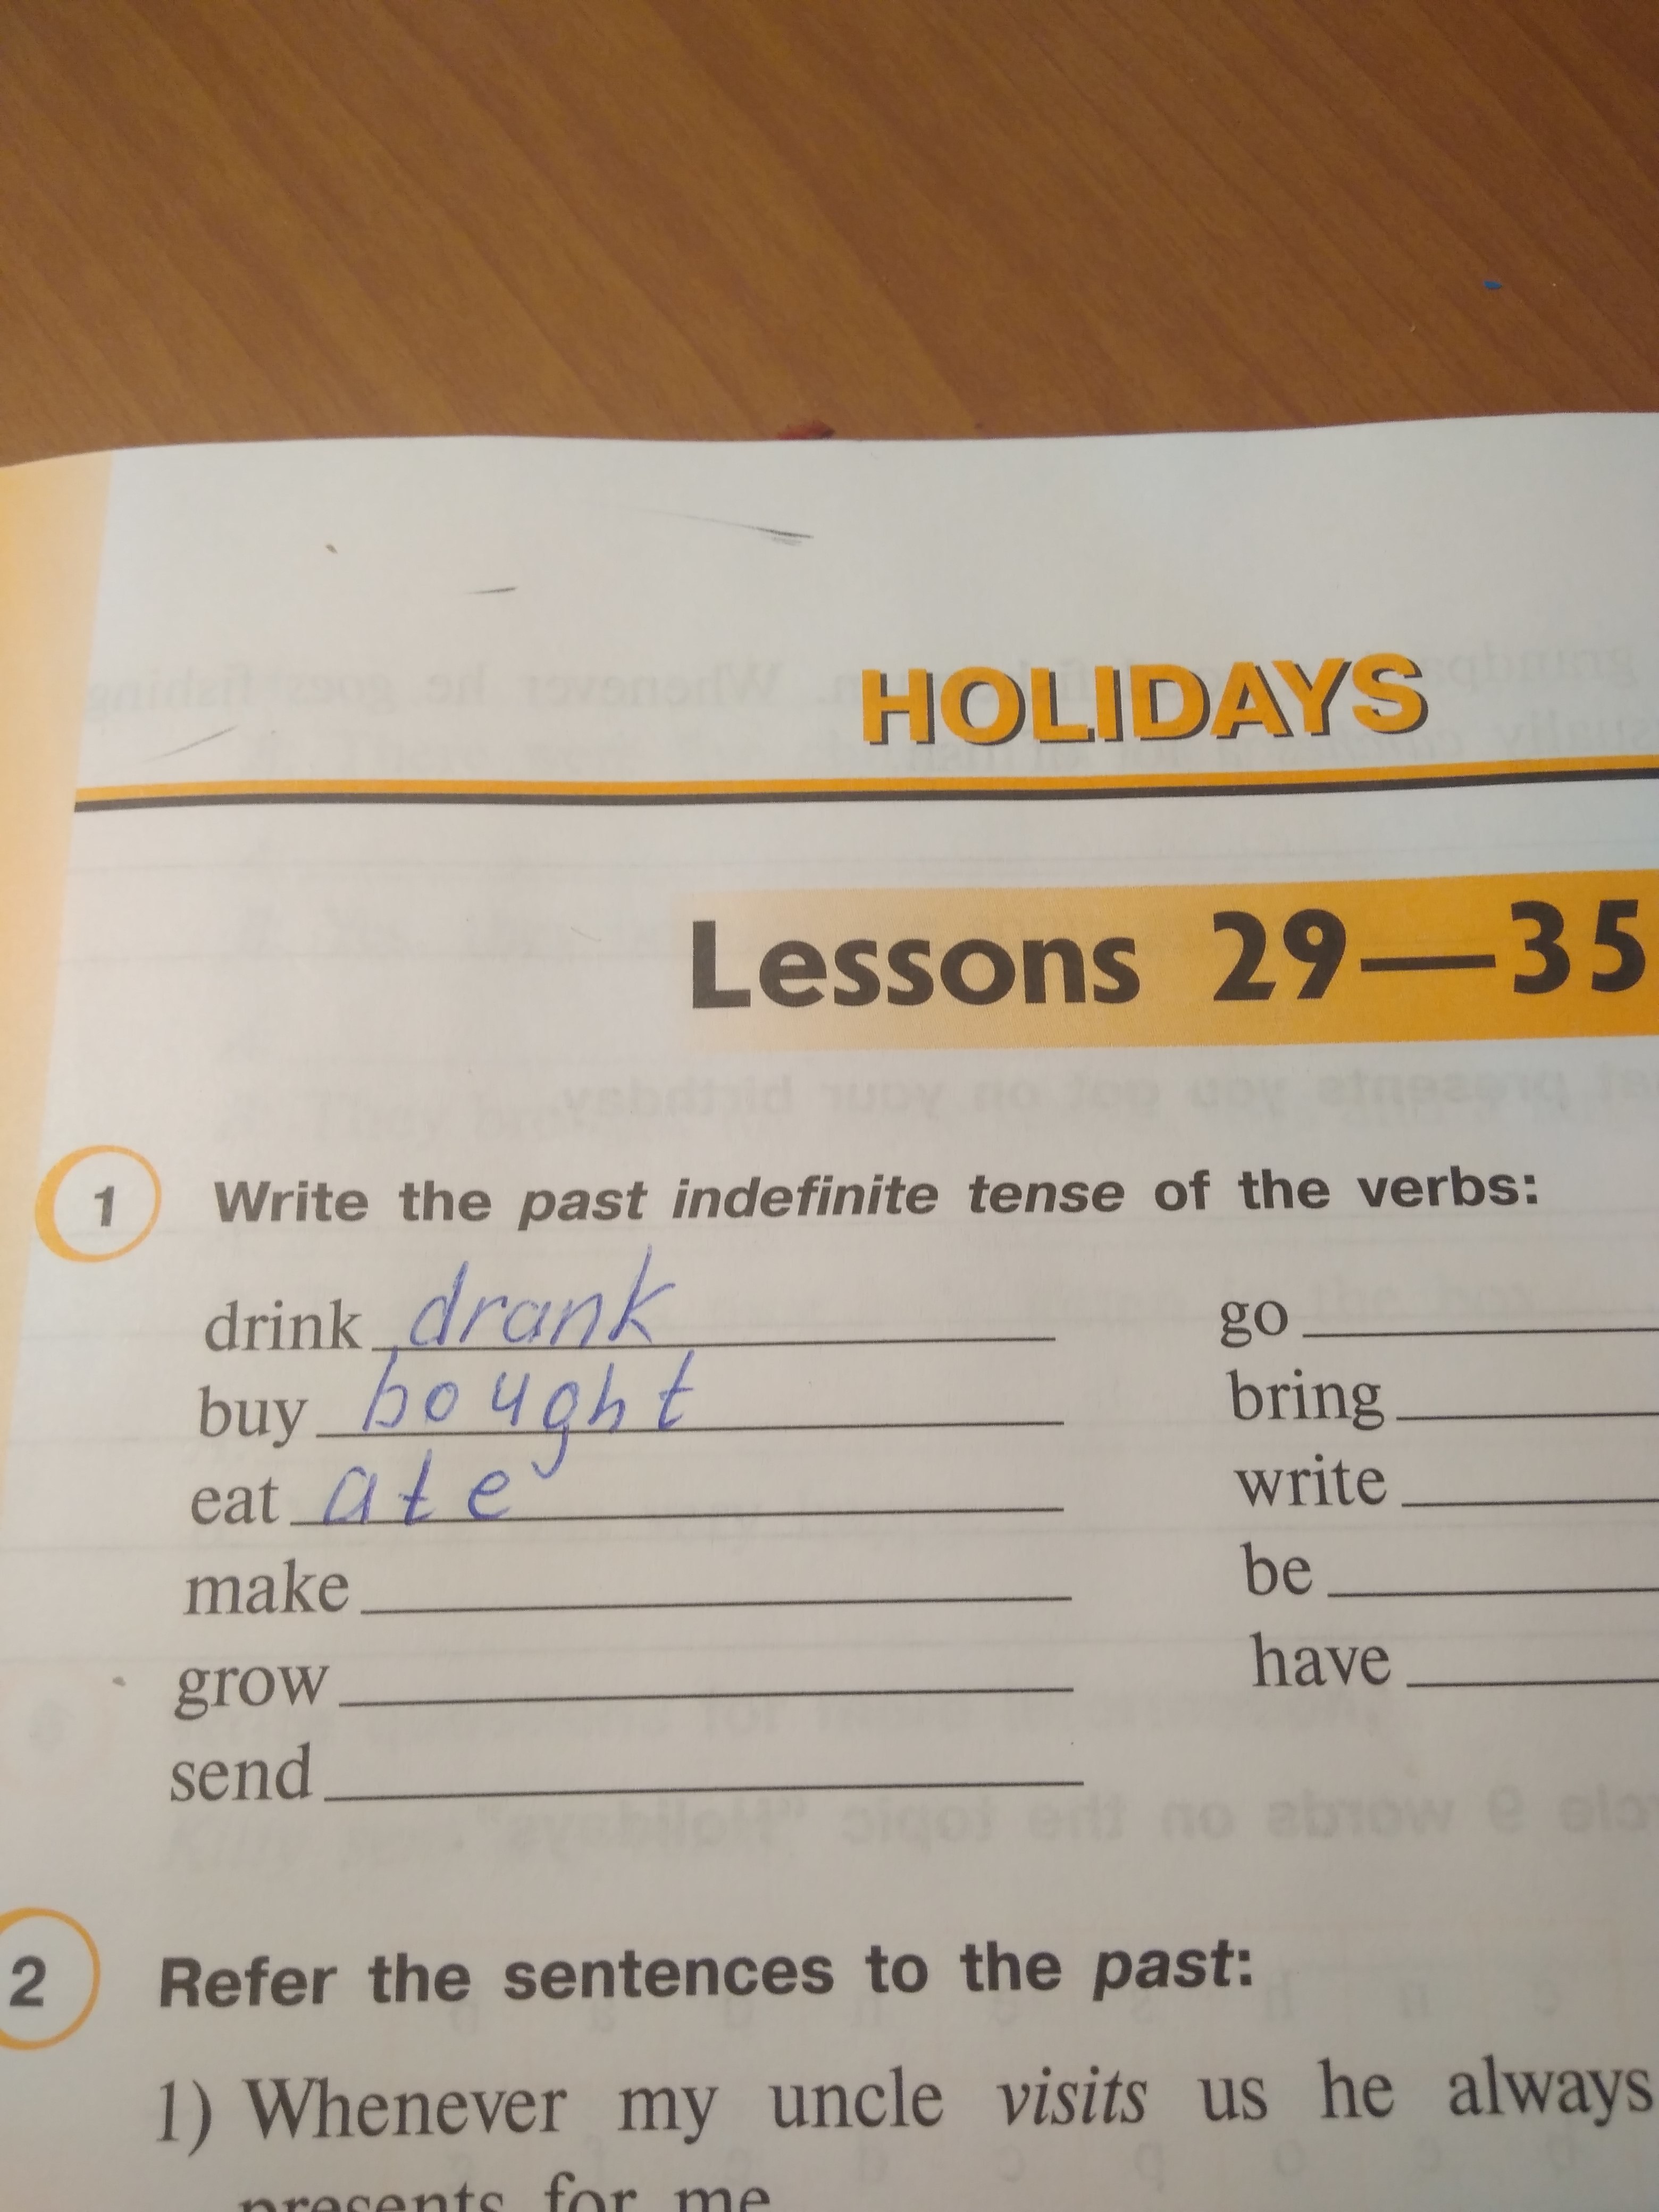 HOLIDAYS
Lessons 29—35
1 Write the past indefinite tense of the verbs:
drink drank
buy bought
eat ate
make
grow
send
go
bring
write
be
have
2 Refer the sentences to the past:
1) Whenever my uncle visits us he always
presents for me